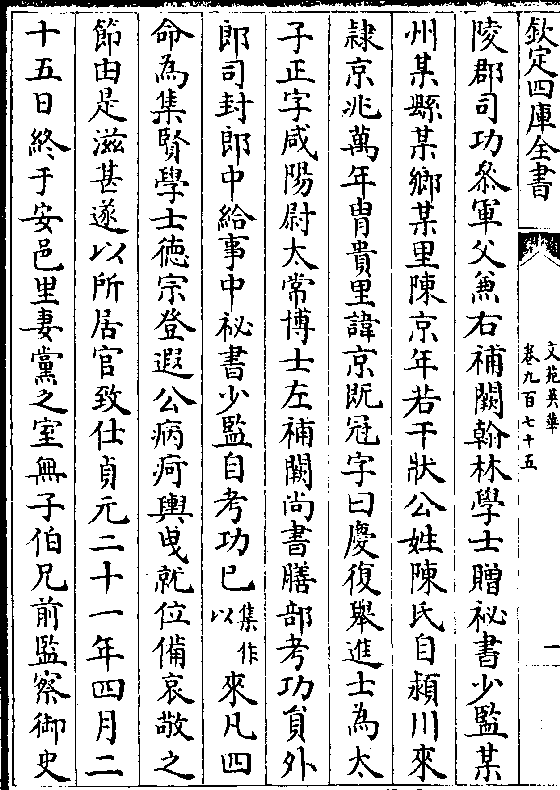 欽定四庫全書
文苑英華
卷九百七十五
一
陵郡司功叅軍父兼右補闕翰林學士贈祕書少監某
州某縣某鄉某里陳京年若干狀公姓陳氏自潁川來
隸京兆萬年胄貴里諱京既冠字曰慶復舉進士為太
子正字咸陽尉太常博士左補闕尚書膳部考功員外
郎司封郎中給事中祕書少監自考功已集作以來凡四
命為集賢學士徳宗登遐公病痾輿曵就位備哀敬之
節由是滋甚遂以所居官致仕貞元二十一年四月二
十五日終于安邑里妻黨之室無子伯兄前監察御史